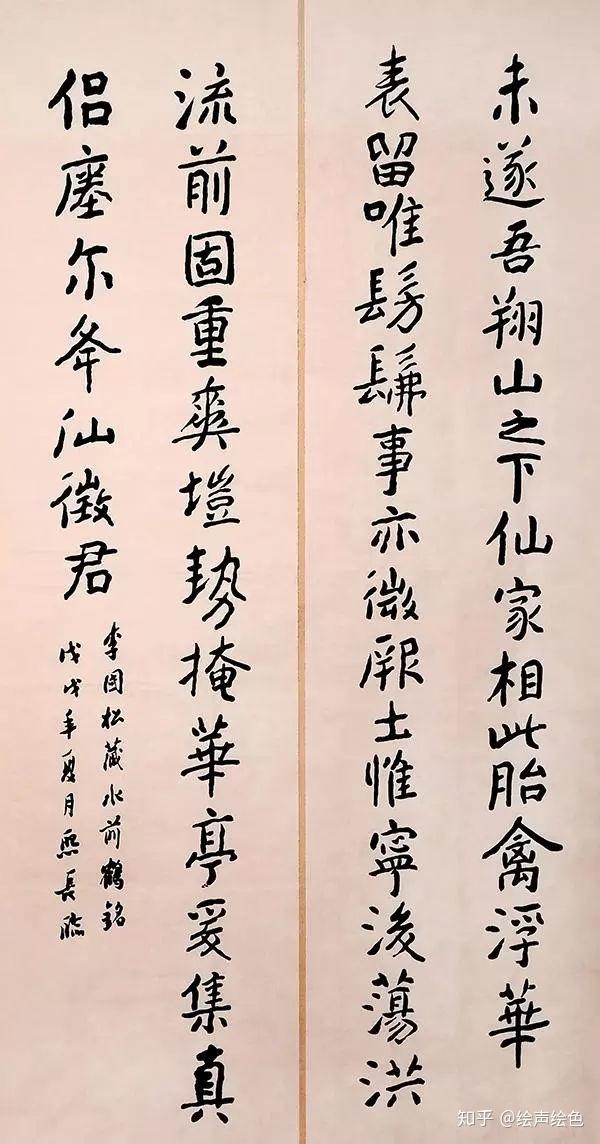 未遂吾翔山之下仙家相此胎禽浮華
表留唯髣髴事亦微厥土惟寧後蕩洪
流前固重爽塏勢掩華亭爰集真
侶瘞尔夅山徵君
李国松藏水前鶴銘
戊戌年夏月熙長臨
知乎 @绘声绘色